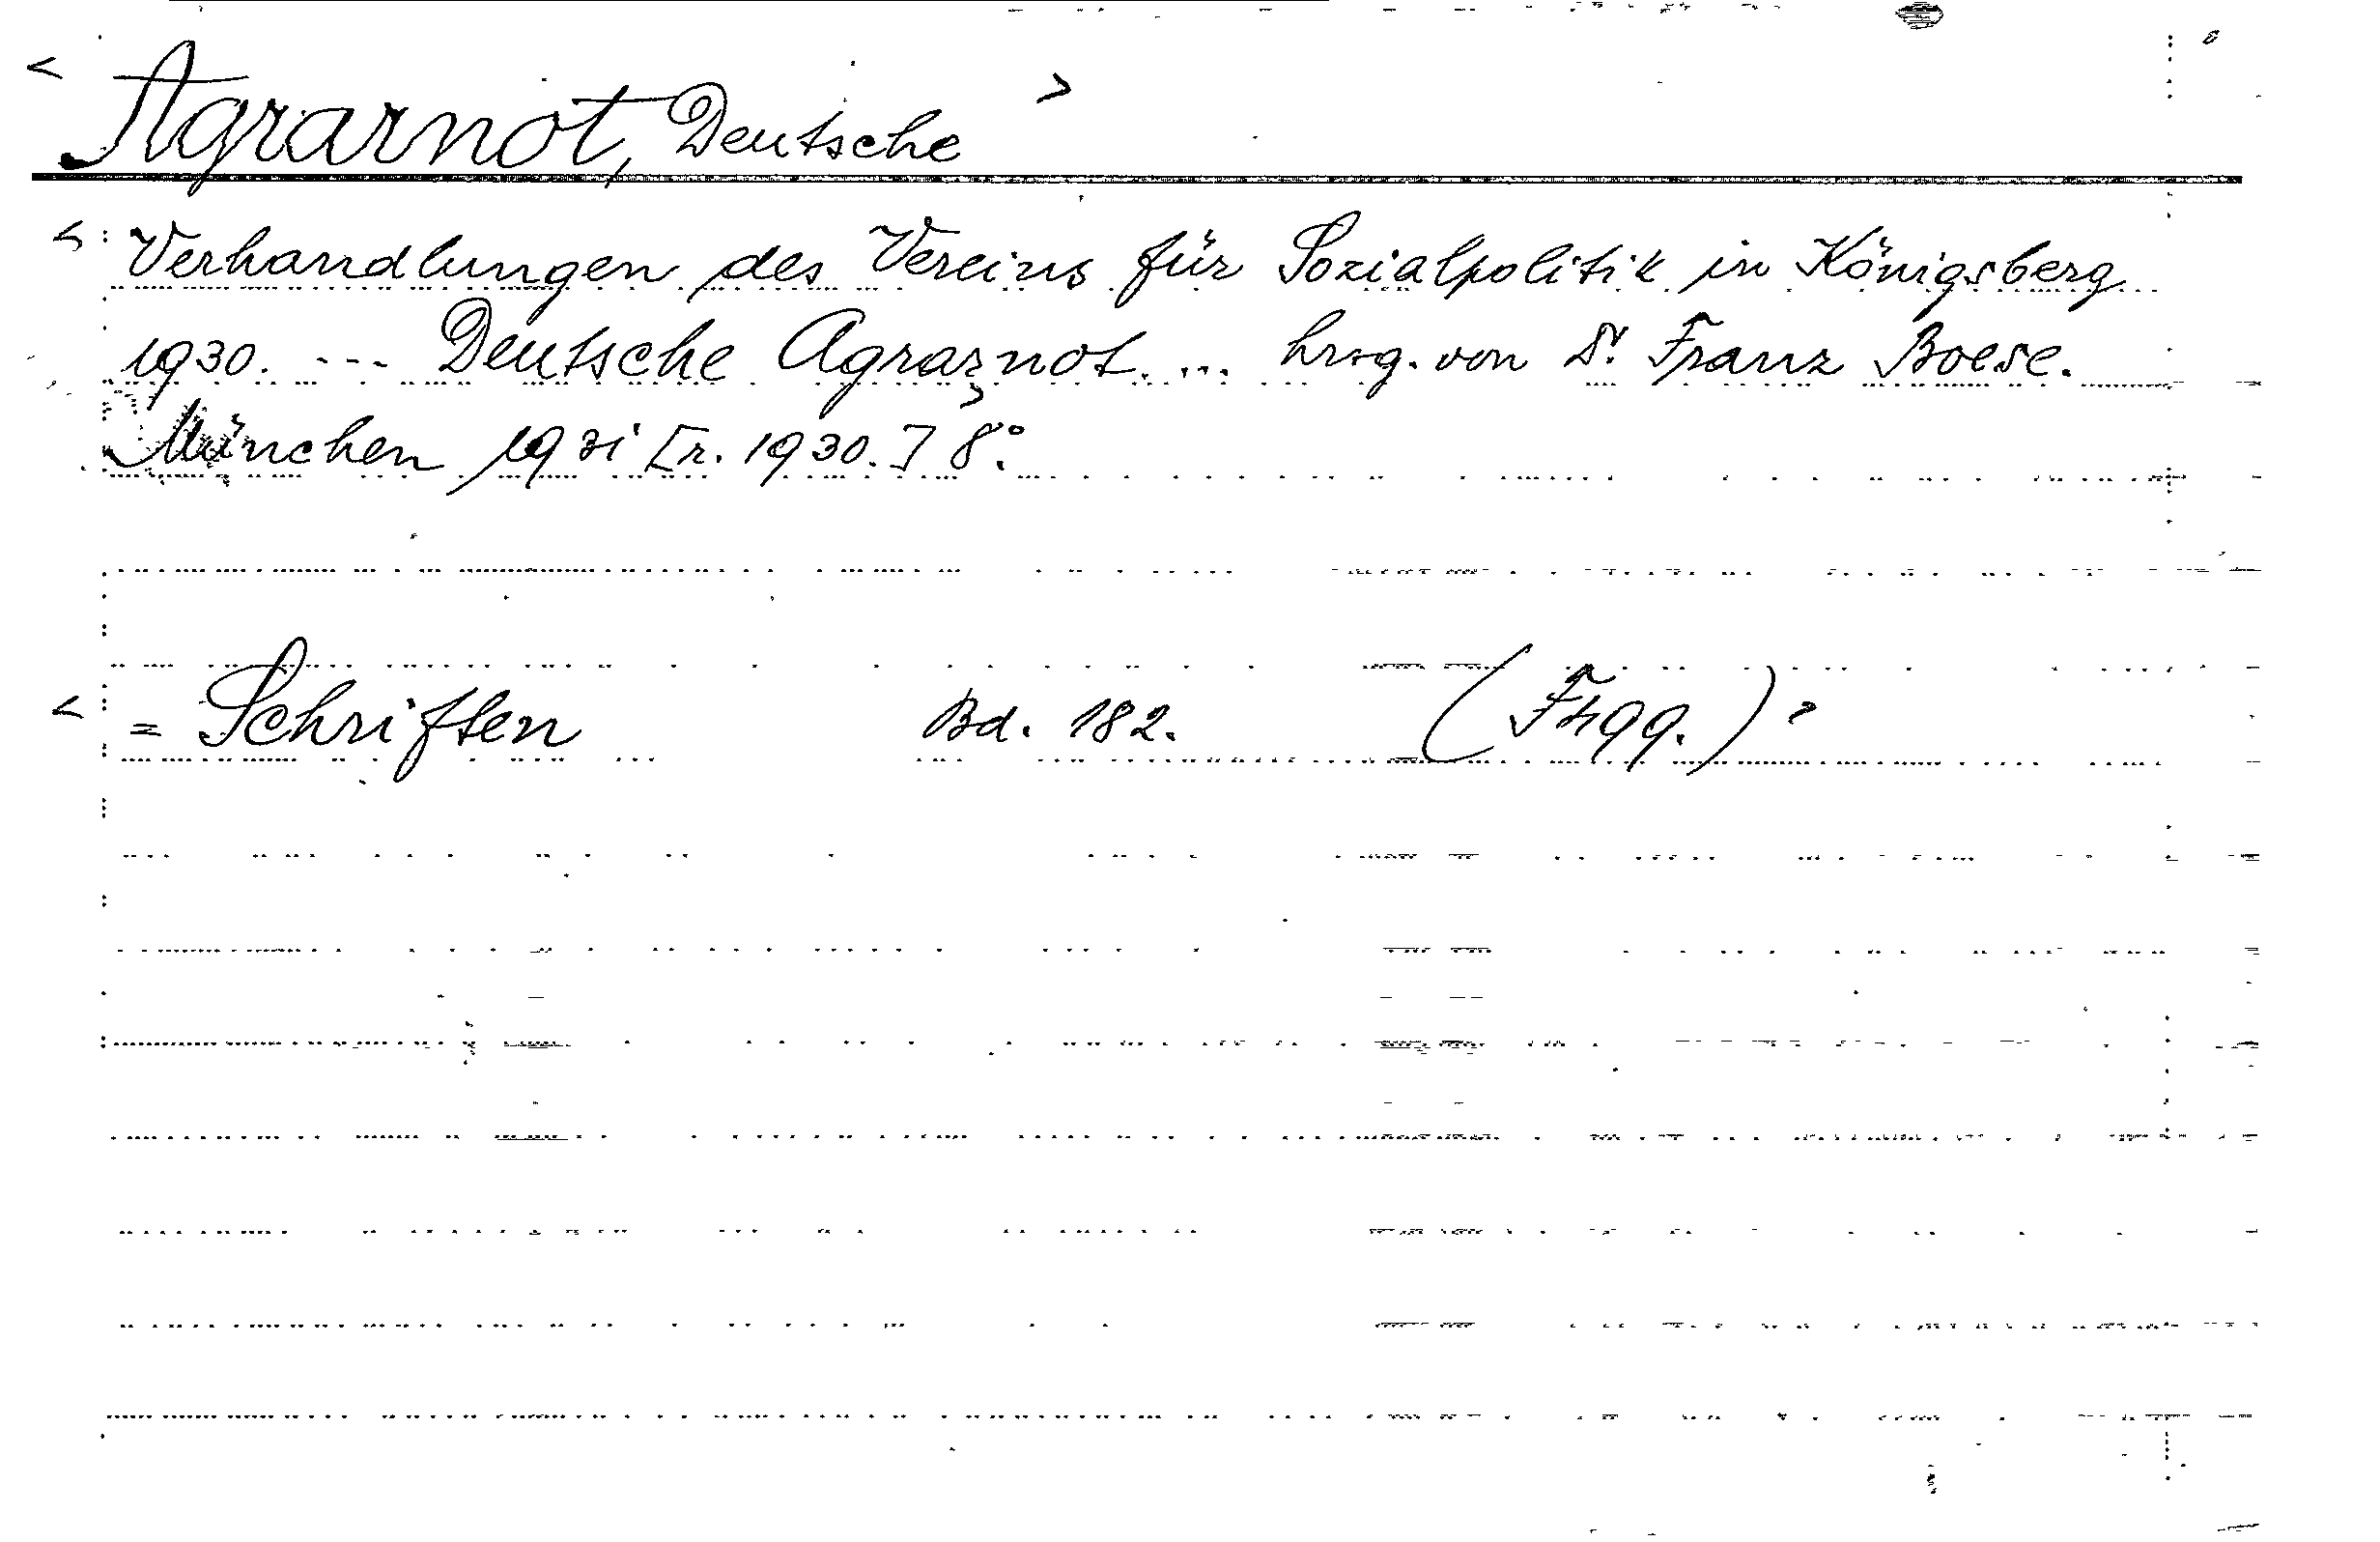 < Agrarnot, Deutsche >
< Verhandlungen des Vereins für Sozialpolitik in Königsberg
1930. --- Deutsche Agrarnot. ... hrsg. von Dr. Franz Boese.
München 1931 [r. 1930.] 8°. >
< = Schriften Bd. 182. (F499.) >